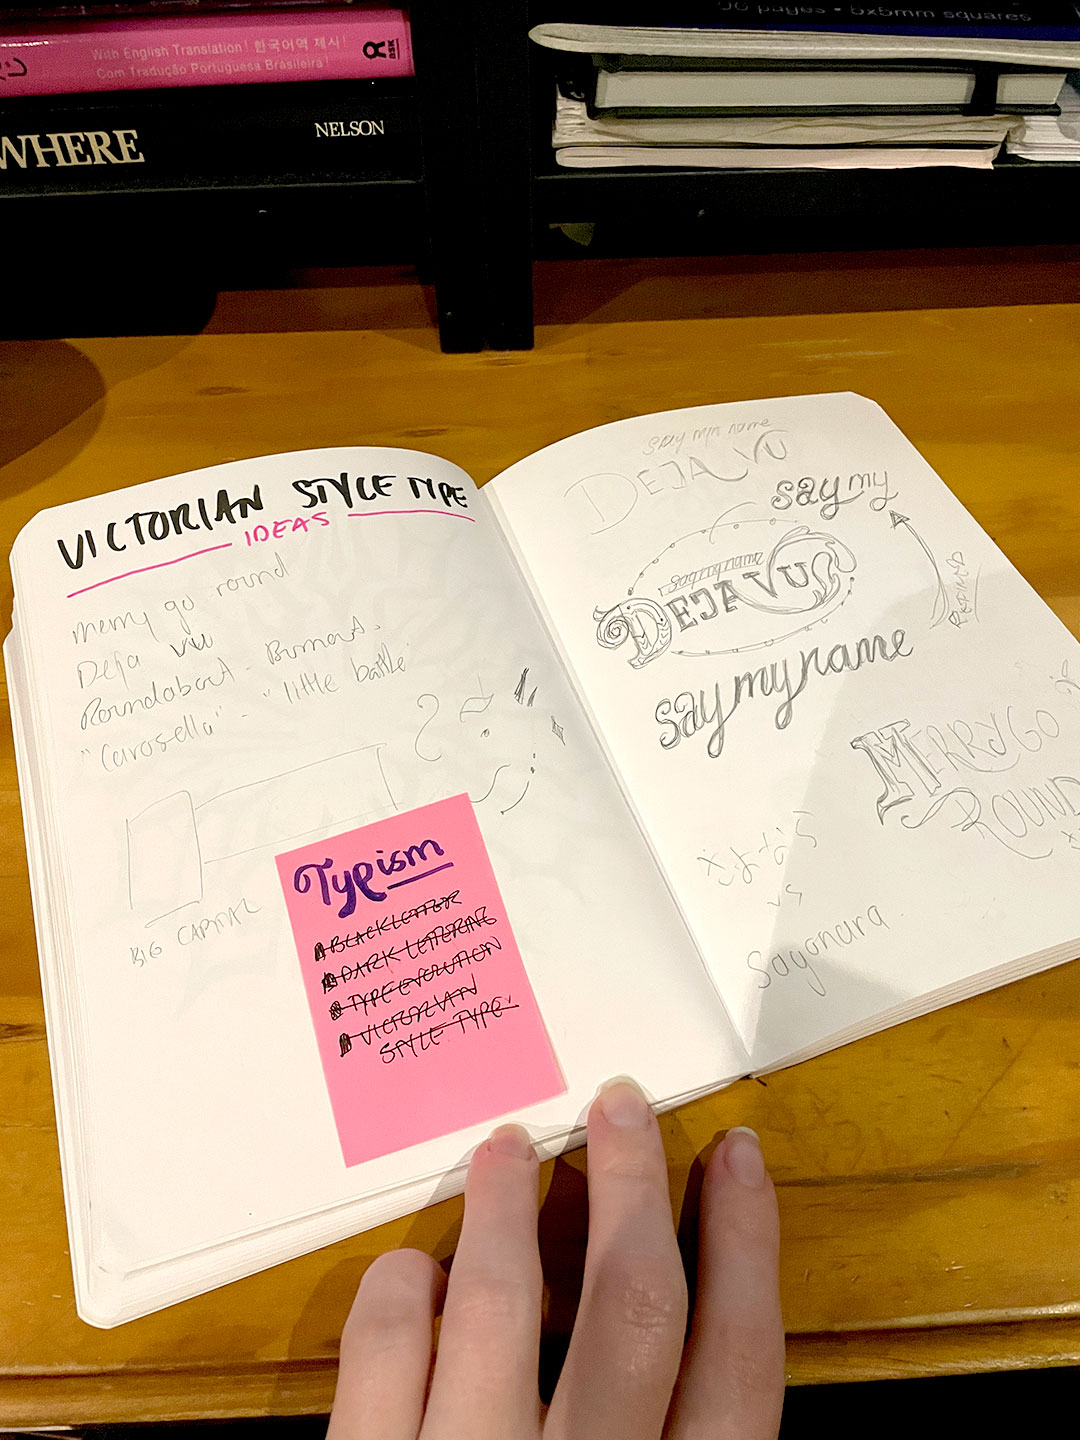 50 pages • 5x5mm squares
With English Translation! 한국어역 제시!
Com Tradução Portuguesa Brasileira!
ASK
WHERE
NELSON
VICTORIAN STYLE TYPE
IDEAS
merry go round
Deja vu
Roundabout - Burnout.
"Carosella" - "little battle"
BIG CAPITAL
Typism
BLACKLETTER
DARK LETTERING
TYPE EVOLUTION
VICTORIAN
STYLE TYPE
say my name
DEJA VU
say my
DEJA VU
say my name
MERRY GO
ROUND
Sayonara